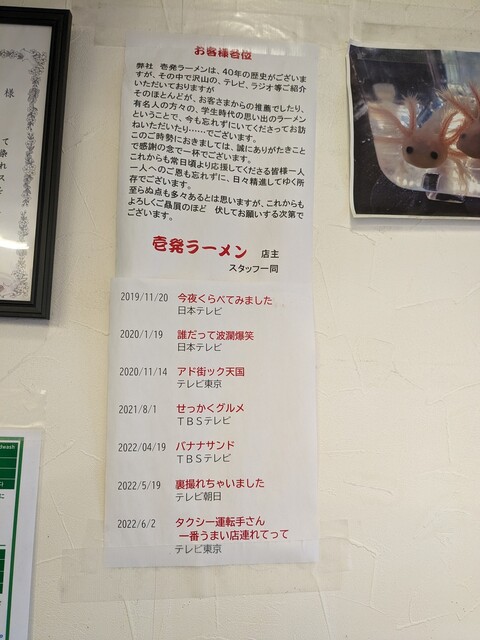 お客様各位
弊社 壱発ラーメンは、40年の歴史がございま
すが、その中で沢山の、テレビ、ラジオ等ご紹介
いただいておりますが
そのほとんどが、お客さまからの推薦でしたり、
有名人の方々の、学生時代の思い出のラーメン
ということで、今も忘れずにいてくださってお訪
ねいただいたり……でございます。
このご時勢におきましては、誠にありがたきこと
で感謝の念で一杯でございます。
これからも常日頃より応援してくださる皆様一人
一人へのご恩も忘れずに、日々精進してゆく所
存でございます。
至らぬ点も多々あるとは思いますが、これからも
よろしくご贔屓のほど 伏してお願いする次第で
ございます。
壱発ラーメン 店主
スタッフ一同
2019/11/20 今夜くらべてみました
日本テレビ
2020/1/19 誰だって波瀾爆笑
日本テレビ
2020/11/14 アド街ック天国
テレビ東京
2021/8/1 せっかくグルメ
TBSテレビ
2022/04/19 バナナサンド
TBSテレビ
2022/5/19 裏撮れちゃいました
テレビ朝日
2022/6/2 タクシー運転手さん
一番うまい店連れてって
テレビ東京
様